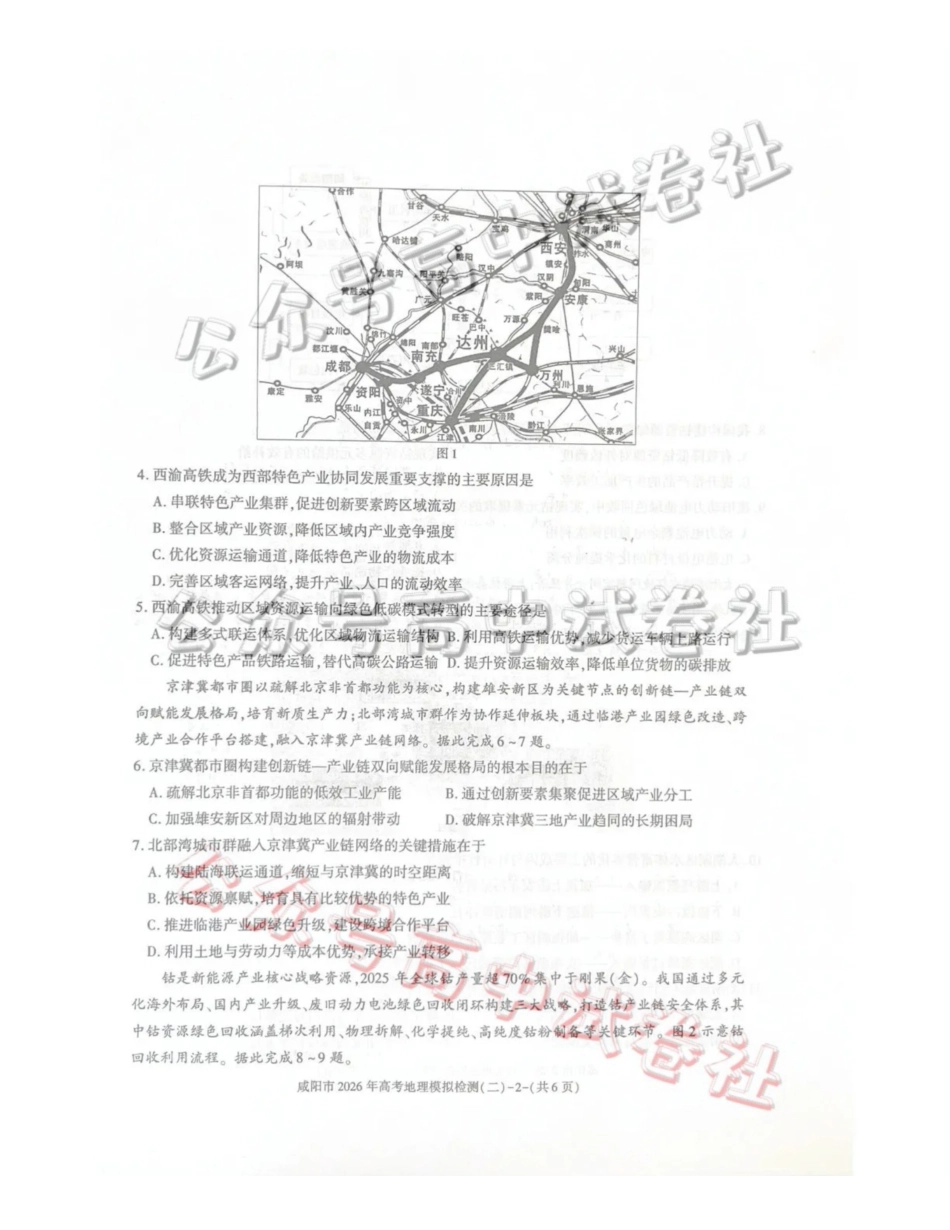 公众号高中试卷社
合作
甘谷
天水
宝鸡
渭南
华山
西安
商州
柞水
镇安
哈达铺
阿坝
九寨沟
黄胜关
阳平关
略阳
汉中
汉阴
旬阳
紫阳
安康
广元
旺苍
巴中
万源
汶川
都江堰
绵竹
绵阳
南部
南充
达州
三汇镇
万州
兴山
利川
恩施
成都
康定
雅安
乐山
资阳
资中
内江
自贡
遂宁
合川
重庆
永川
江津
南川
涪陵
黔江
张家界
图1
4. 西渝高铁成为西部特色产业协同发展重要支撑的主要原因是
A. 串联特色产业集群,促进创新要素跨区域流动
B. 整合区域产业资源,降低区域内产业竞争强度
C. 优化资源运输通道,降低特色产业的物流成本
D. 完善区域客运网络,提升产业、人口的流动效率
5. 西渝高铁推动区域资源运输向绿色低碳模式转型的主要途径是
A. 构建多式联运体系,优化区域物流运输结构 B. 利用高铁运输优势,减少货运车辆上路运行
公众号高中试卷社
C. 促进特色产品铁路运输,替代高碳公路运输 D. 提升资源运输效率,降低单位货物的碳排放
京津冀都市圈以疏解北京非首都功能为核心,构建雄安新区为关键节点的创新链—产业链双
向赋能发展格局,培育新质生产力;北部湾城市群作为协作延伸板块,通过临港产业园绿色改造、跨
境产业合作平台搭建,融入京津冀产业链网络。据此完成6~7题。
6. 京津冀都市圈构建创新链—产业链双向赋能发展格局的根本目的在于
A. 疏解北京非首都功能的低效工业产能 B. 通过创新要素集聚促进区域产业分工
C. 加强雄安新区对周边地区的辐射带动 D. 破解京津冀三地产业趋同的长期困局
7. 北部湾城市群融入京津冀产业链网络的关键措施在于
A. 构建陆海联运通道,缩短与京津冀的时空距离
B. 依托资源禀赋,培育具有比较优势的特色产业
C. 推进临港产业园绿色升级,建设跨境合作平台
D. 利用土地与劳动力等成本优势,承接产业转移
公众号高中试卷社
钴是新能源产业核心战略资源,2025年全球钴产量超70%集中于刚果(金)。我国通过多元
化海外布局、国内产业升级、废旧动力电池绿色回收闭环构建三大战略,打造钴产业链安全体系,其
中钴资源绿色回收涵盖梯次利用、物理拆解、化学提纯、高纯度钴粉制备等关键环节。图2示意钴
回收利用流程。据此完成8~9题。
咸阳市2026年高考地理模拟检测(二)-2-(共6页)